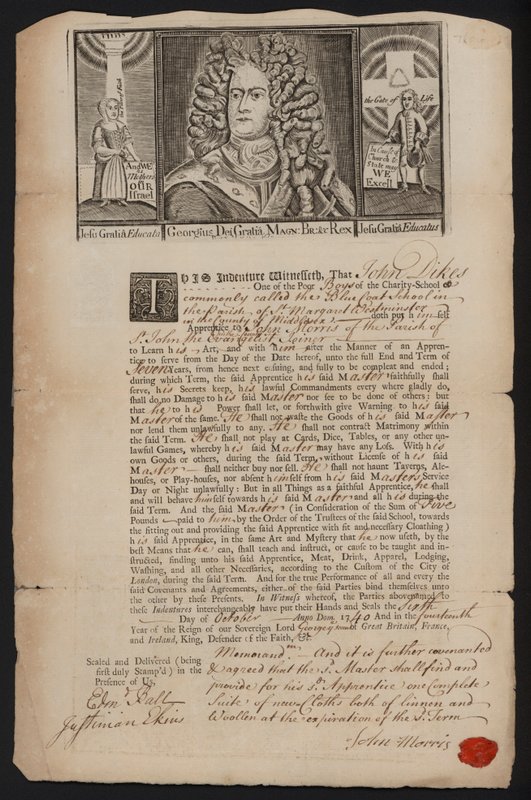 the Pillar of Faith
And WE
Mothers
OUR
Israel
the Gate of Life
In Church &
State may
WE
Excell
Jesu Gratiâ Educata
Georgius Dei Gratiâ Magn: Br: &c Rex
Jesu Gratiâ Educatus
THIS Indenture Witnesseth, That John Dikes
One of the Poor Boys of the Charity-School
commonly called the Blue Coat School in
the Parish of St. Margaret Westminster
in the County of Middlesex doth put himself
Apprentice to John Morris of the Parish of
St. John the Evangelist Joiner
to Learn his Art, and with him after the Manner of an Appren-
tice to serve from the Day of the Date hereof, unto the full End and Term of
Seven Years, from hence next ensuing, and fully to be compleat and ended;
during which Term, the said Apprentice his said Master faithfully shall
serve, his Secrets keep, his lawful Commandments every where gladly do,
shall do no Damage to his said Master nor see to be done of others; but
that he to his Power shall let, or forthwith give Warning to his said
Master of the same. He shall not waste the Goods of his said Master
nor lend them unlawfully to any. He shall not contract Matrimony within
the said Term. He shall not play at Cards, Dice, Tables, or any other un-
lawful Games, whereby his said Master may have any Loss. With his
own Goods or others, during the said Term, without License of his said
Master shall neither buy nor sell. He shall not haunt Taverns, Ale-
houses, or Play-houses, nor absent himself from his said Masters Service
Day or Night unlawfully: But in all Things as a faithful Apprentice, he shall
and will behave himself towards his said Master and all his during the
said Term. And the said Master (in Consideration of the Sum of Five
Pounds paid to him by the Order of the Trustees of the said School, towards
the fitting out and providing the said Apprentice with fit and necessary Cloathing)
his said Apprentice, in the same Art and Mystery that he now useth, by the
best Means that he can, shall teach and instruct, or cause to be taught and in-
structed, finding unto his said Apprentice, Meat, Drink, Apparel, Lodging,
Washing, and all other Necessaries, according to the Custom of the City of
London, during the said Term. And for the true Performance of all and every the
said Covenants and Agreements, either of the said Parties bind themselves unto
the other by these Presents. In Witness whereof, the Parties abovenamed to
these Indentures interchangeably have put their Hands and Seals the Sixth
Day of October Anno Dom. 1740 And in the fourteenth
Year of the Reign of our Sovereign Lord George the second of Great Britain, France,
and Ireland, King, Defender of the Faith, &c.
Memorandm. And it is further covenanted
& agreed that the sd. Master shall find and
provide for his sd. Apprentice one Complete
Suite of new Cloths both of linnen and
Woollen at the expiration of the sd. Term
John Morris
Sealed and Delivered (being
first duly Stamp'd) in the
Presence of Us,
Edmd. Ball
Justinian Ekins